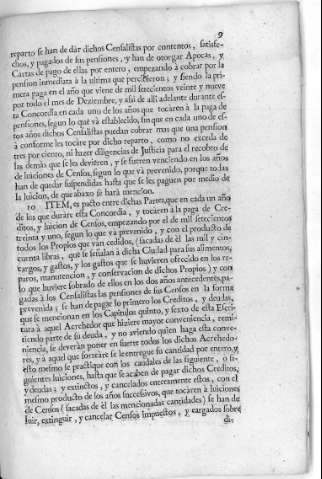 9
reparto se han de dár dichos Censalistas por contentos, satisfe-
chos, y pagados de sus pensiones, y han de otorgar Apocas, y
Cartas de pago de ellas por entero, empezando à cobrar por la
pension inmediata à la ultima que percibieron; y siendo la pri-
mera paga en el año que viene de mil setecientos veinte y nueve
por todo el mes de Deziembre, y assi de alli adelante durante es-
ta Concordia en cada uno de los años que tocàren à la paga de
pensiones, segun lo que và establecido, sin que en cada uno de es-
tos años dichos Censalistas puedan cobrar mas que una pension
à conforme les tocàre por dicho reparto, como no exceda de
tres por ciento, ni hazer diligencias de Justicia para el recobro de
las demás que se les devieren, y se fueren venciendo en los años
de luiciones de Censos, segun lo que và prevenido, porque todas
han de quedar suspendidas hasta que se les paguen por medio de
la luicion, de que abaxo se harà mencion.
10 ITEM, es pacto entre dichas Partes, que en cada un año
de los que duràre esta Concordia, y tocàren à la paga de Cre-
ditos, y luicion de Censos, empezando por el de mil setecientos
treinta y uno, segun lo que và prevenido, y con el producto de
todos los Propios que van cedidos, (sacadas de èl las mil y cin-
cuenta libras, què se señalan à dicha Ciudad para sus alimentos,
cargos, y gastos, y los gastos que se huvieren ofrecido en los re-
paros, manutencion, y conservacion de dichos Propios) y con
lo que huviere sobrado de ellos en los dos años antecedentes, pa-
gadas à los Censalistas las pensiones de sus Censos en la forma
prevenida, se han de pagar lo primero los Creditos, y deudas,
que se mencionan en los Capitulos quinto, y sexto de esta Escri-
tura à aquel Acrehedor que hiziere mayor conveniencia, remi-
tiendo parte de su deuda, y no aviendo quien haga esta conve-
niencia, se deveràn poner en suerte todos los dichos Acrehedo-
res, y à aquel que sorteàre se le entregue su cantidad por entero, y
esto mesmo se practique con los caudales de las siguiente, o si-
guientes luiciones, hasta que se acaben de pagar dichos Creditos,
y deudas; y extinctos, y cancelados enteramente estos, con el
mesmo producto de los años successivos, que tocàren à luiciones
de Censos (sacadas de èl las mencionadas cantidades) se han de
luir, extinguir, y cancelar Censos impuestos, y cargados sobre